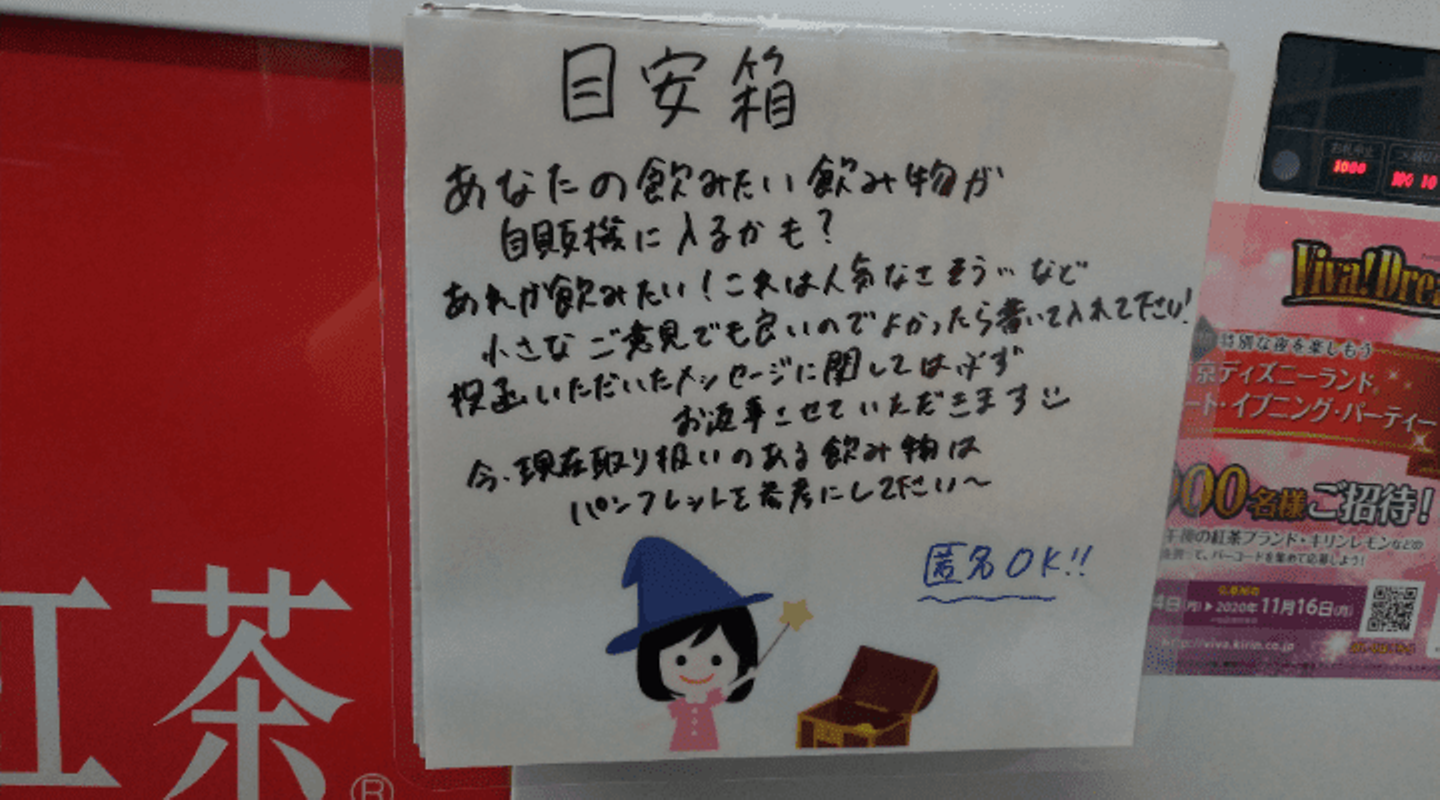 目安箱
あなたの飲みたい飲み物が
自販機に入るかも？
あれが飲みたい！これは人気なさそう…など
小さなご意見でも良いのでよかったら書いて入れて下さい！
投函いただいたメッセージに関しては必ず
お返事させていただきます
今、現在取り扱いのある飲み物は
パンフレットを参考にして下さい〜
匿名OK!!
紅茶
®
1000
100 10
Viva!Drea
特別な夜を楽しもう
京ディズニーランド
ート・イブニング・パーティー
000名様ご招待！
午後の紅茶ブランド・キリンレモンなどの
て、バーコードを集めて応募しよう!
4日(月)▶2020年11月16日(月)
http://viva.kirin.co.jp